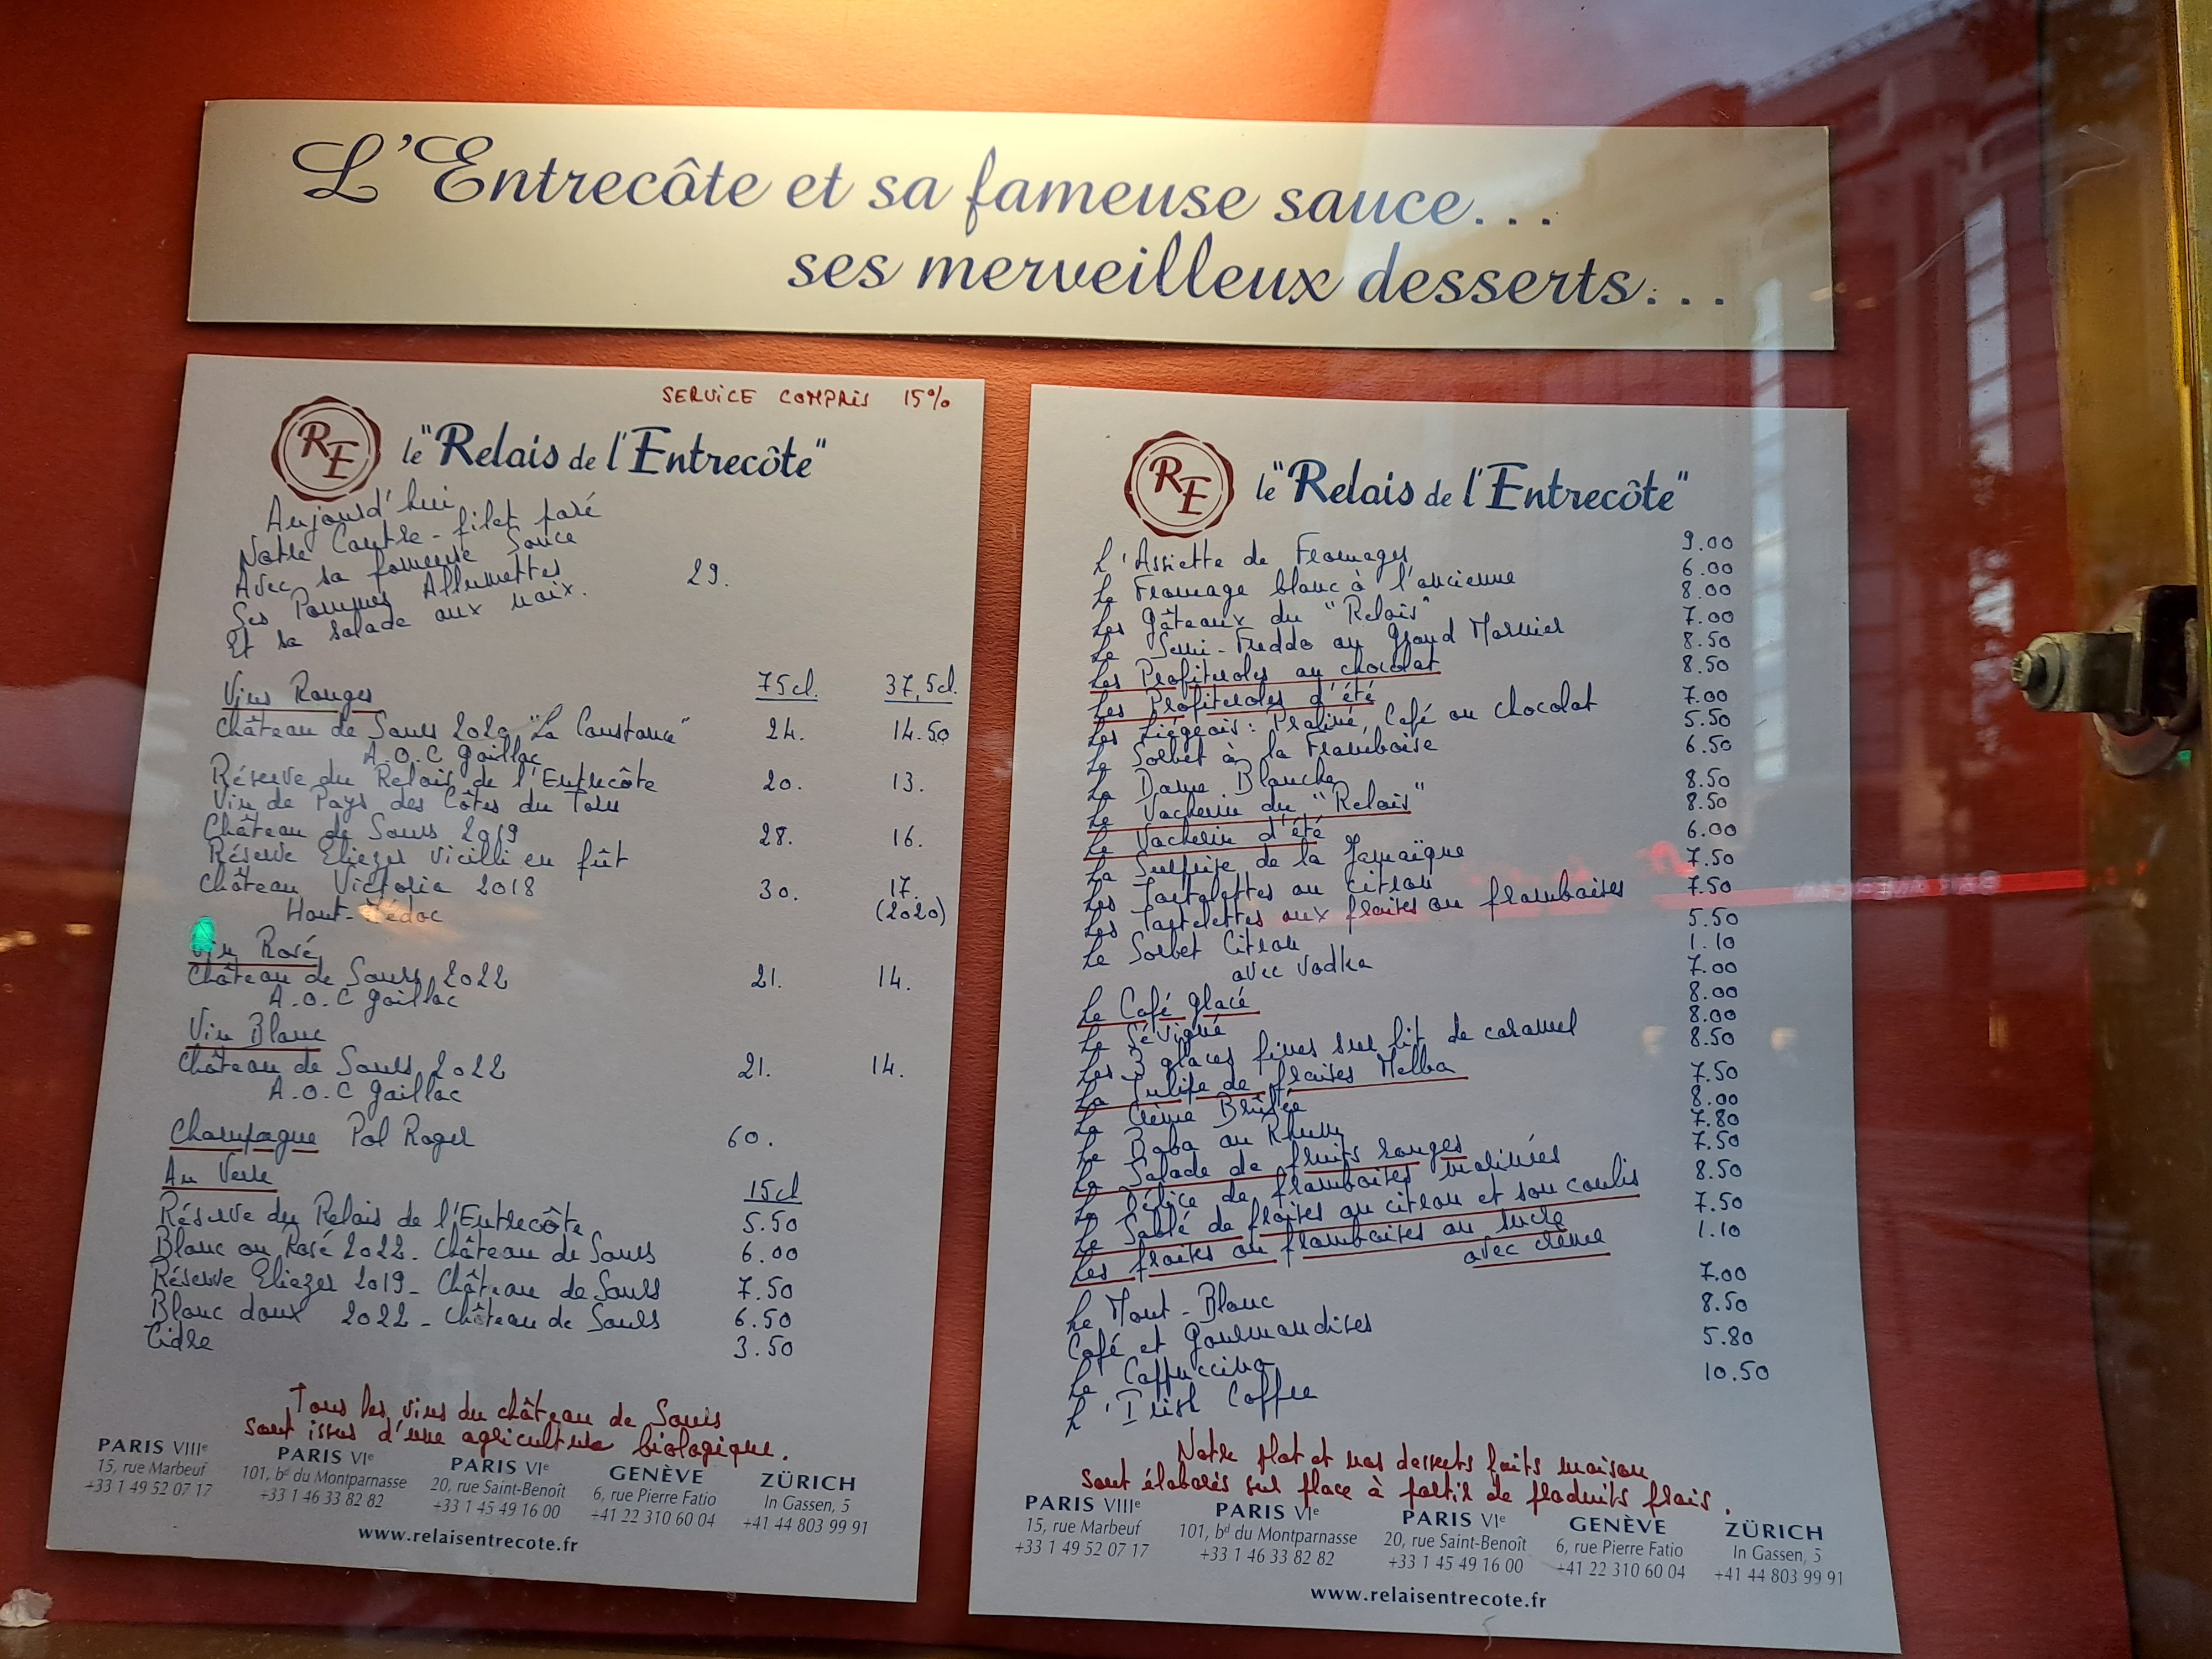 L'Entrecôte et sa fameuse sauce...
ses merveilleux desserts...
SERVICE COMPRIS 15%
RE le "Relais de l'Entrecôte"
Aujourd'hui
Notre Contre-filet paré
Avec sa fameuse Sauce
Ses Pommes Allumettes
Et sa salade aux noix. 29.
Vins Rouges 75cl. 37,5cl.
Château de Saurs 2020 "La Constance" 24. 14.50
A.O.C Gaillac
Réserve du Relais de l'Entrecôte 20. 13.
Vin de Pays des Côtes du Tarn
Château de Saurs 2019 28. 16.
Réserve Eliezer vieilli en fût
Château Victoria 2018 30. 17.
Haut-Médoc (2020)
Vin Rosé
Château de Saurs 2022 21. 14.
A.O.C Gaillac
Vin Blanc
Château de Saurs 2022 21. 14.
A.O.C Gaillac
Champagne Pol Roger 60.
Au Verre 15cl
Réserve du Relais de l'Entrecôte 5.50
Blanc ou Rosé 2022 - Château de Saurs 6.00
Réserve Eliezer 2019 - Château de Saurs 7.50
Blanc doux 2022 - Château de Saurs 6.50
Cidre 3.50
Tous les vins du château de Saurs
sont issus d'une agriculture biologique.
PARIS VIIIe PARIS VIe PARIS VIe GENÈVE ZÜRICH
15, rue Marbeuf 101, bd du Montparnasse 20, rue Saint-Benoît 6, rue Pierre Fatio In Gassen, 5
+33 1 49 52 07 17 +33 1 46 33 82 82 +33 1 45 49 16 00 +41 22 310 60 04 +41 44 803 99 91
www.relaisentrecote.fr
RE le "Relais de l'Entrecôte"
L'Assiette de Fromages 9.00
Le Fromage blanc à l'ancienne 6.00
Les Gâteaux du "Relais" 8.00
Le Semi-Freddo au Grand Marnier 7.00
Les Profiteroles au chocolat 8.50
Les Profiteroles d'été 8.50
Les Liégeois: Praliné, Café ou chocolat 7.00
Le Sorbet à la Framboise 5.50
La Dame Blanche 6.50
Le Vacherin du "Relais" 8.50
Le Vacherin d'été 8.50
La Surprise de la Jamaïque 6.00
Les Tartelettes au citron 7.50
Les Tartelettes aux fraises ou framboises 7.50
Le Sorbet Citron 5.50
avec vodka 1.10
Le Café glacé 7.00
Le Sévigné 8.00
Les 3 glaces fines sur lit de caramel 8.00
La Tulipe de fraises Melba 8.50
La Crème Brûlée 7.50
Le Baba au Rhum 8.00
La Salade de fruits rouges 7.80
Le Délice de framboises marinées 7.50
Le Sablé de fraises au citron et son coulis 8.50
Les fraises ou framboises au sucre 7.50
avec crème 1.10
Le Mont-Blanc 7.00
Café et Gourmandises 8.50
Le Cappuccino 5.80
L'Irish Coffee 10.50
Notre plat et nos desserts faits maison
sont élaborés sur place à partir de produits frais.
PARIS VIIIe PARIS VIe PARIS VIe GENÈVE ZÜRICH
15, rue Marbeuf 101, bd du Montparnasse 20, rue Saint-Benoît 6, rue Pierre Fatio In Gassen, 5
+33 1 49 52 07 17 +33 1 46 33 82 82 +33 1 45 49 16 00 +41 22 310 60 04 +41 44 803 99 91
www.relaisentrecote.fr